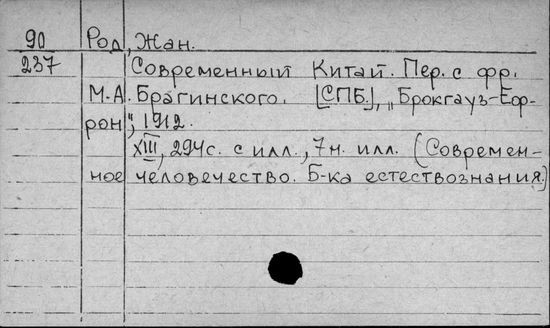 90 Род, Жан.
237 Современный Китай. Пер. с фр.
М.А. Брагинского. [СПБ.], „Брокгауз-Еф-
рон", 1912.
XIII, 294с. с илл., 7н. илл. (Современ-
ное человечество. Б-ка естествознания.)